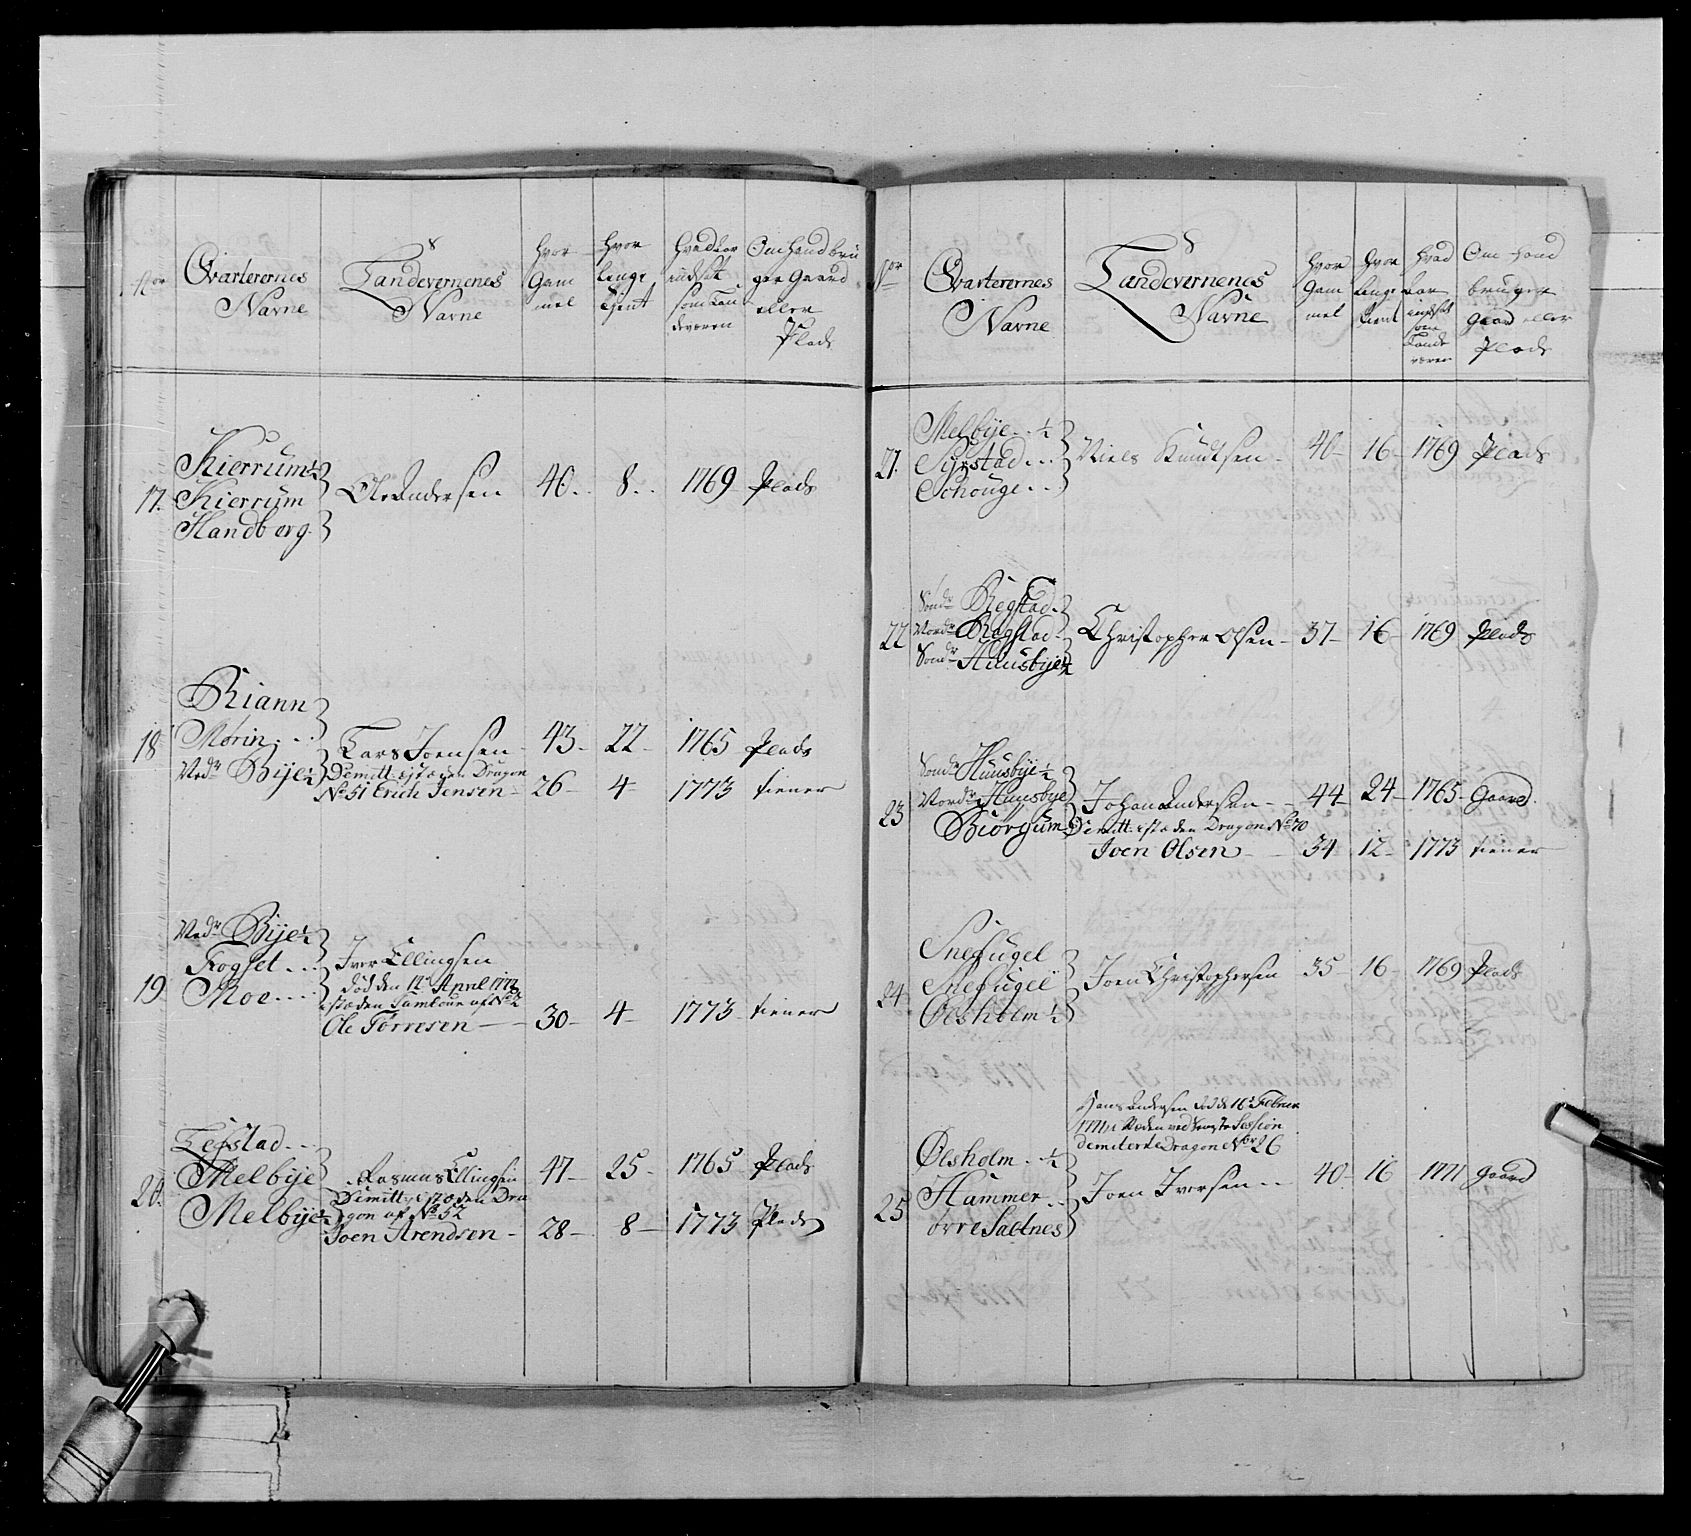 Nor
Qvarterernes
Navne
Landevernenes
Navne
Hvor
Gam
mel
Hvor
lenge
Tjent
Hvad Aar
indsatt
som Lan
deværen
Om hand bru
ger Gaard
eller
Plads
17.
Kierrum ½
Kierrum
Handberg.
Ole Andersen 40.. 8.. 1769 Plads
18
Riann
Morin...
Vedr Bije ½
Lars Joensen 43- 22- 1765 Plads
Demitt: istæden Dragon
No 51 Erich Jensen - 26- 4- 1773 tiener
19
Vedr Bije ½
Rogset...
Moe....
Iver Ellingsen
død den 12t April 1772
istæden Tambour af No 2
Ole Torresen - 30- 4- 1773 tiener
20.
Leistad...
Melbÿe
Melbÿe ½
Rasmus Ellingsen 47- 25- 1765 Plads
Demitt, istæden Dra
gon af No 52
Joen Arendsen - 28- 8- 1773 Plads
Nor
Qvarterernes
Navne
Landevernenes
Navne
Hvor
Gam
mel
Hvor
lenge
tient
Hvad
Aar
indsat
som
Lande
væren
Om Hand
bruger
Gaard eller
Plads
21.
Melbÿe.. ½
Syrstad...
Schouge...
Niels Knudsen - 40- 16- 1769 Plads
22
Søndr Regstad.
Nordr Regstad.
Søndr Huusbye ½
Christopher Olsen - 37- 16- 1769 Plads
23
Søndr Huusbye ½
Nordr Huusbye
Biörgum
Johan Andersen - - 44- 24- 1765- Gaard.
Demitt: istæden Dragon No 70
Joen Olsen - - 34 12- 1773 tiener
24
Snefugel
Snefugel
Ølsholm ½
Joen Christophersen 35- 16- 1769 Plads
25
Ølsholm. ½
Hammer..
övre Saltnes
Hans Andersen død d 16 Februar
demiterte Dragon Nor 26
Joen Iversen - - 40- 16 1771 gaard